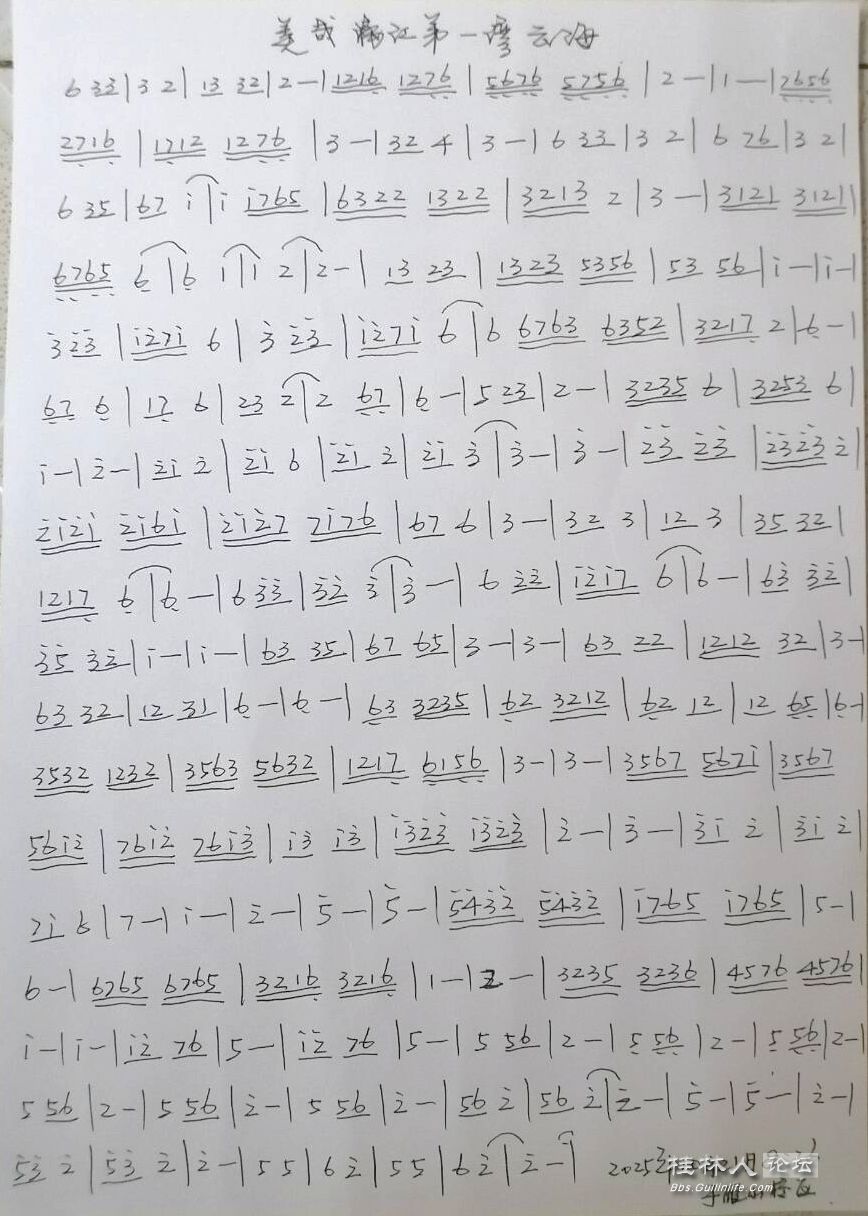 美哉漓江第一湾云海
6 33|3 2|13 32|2—|1216 1276|5676 5756|2—|1—|7656
2716|1712 1276|3—|32 4|3—|6 33|3 2|6 76|3 2|
6 35|67 i|i i765|6322 1322|3213 2|3—|3121 3121|
6765 6|6 1|1 2|2—|13 23|1323 5356|53 56|i—|i—|
3 23|i27i 6|3 23|i27i 6|6 6763 6352|3217 2|6—|
67 6|17 6|23 2|2 67|6—|5 23|2—|3235 6|3253 6|
i—|2—|2i 2|2i 6|2i 2|2i 3|3—|3—|23 23|2323 2|
2i2i 2i6i|2i27 7i76|67 6|3—|32 3|12 3|35 32|
1217 6|6—|6 33|32 3|3—|6 22|i2i7 6|6—|63 32|
35 32|i—|i—|63 35|67 65|3—|3—|63 22|1212 32|3—|
63 32|12 31|6—|6—|63 3235|62 3212|62 12|12 65|6—|
3532 1232|3563 5632|1217 6156|3—|3—|3567 567i|3567
56i2|76i2 76i3|i3 i3|i323 i323|2—|3—|3i 2|3i 2|
7i 6|7—|i—|2—|5—|5—|5432 5432|i765 i765|5—|
6—|6765 6765|3216 3216|1—|2—|3235 3236|4576 4576|
i—|i—|i2 76|5—|i2 76|5—|5 56|2—|5 56|2—|5 56|2—|
5 56|2—|5 56|2—|5 56|2—|56 2|56 2|2—|5—|5—|2—|
53 2|53 2|2—|5 5|6 2|5 5|6 2|2—|
2025年
桂林人论坛
Bbs.Guilinlife.Com